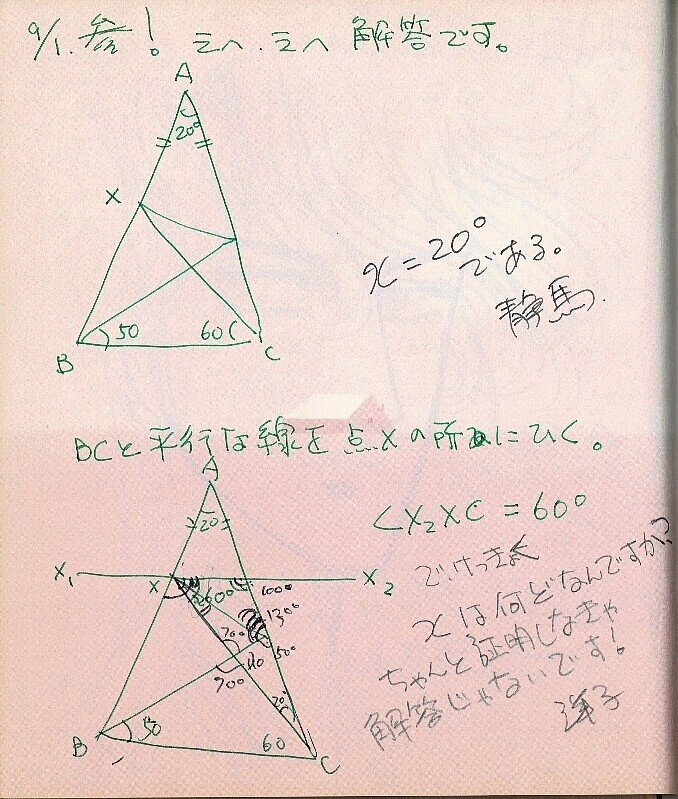 9/1. 参! ミヘ.ミヘ 解答です。
A
20°
X
50
60
B
C
x=20°
である。
静馬.
BCと平行な線を点Xの所にひく。
A
20
<X₂XC = 60°
X₁
X
X₂
60°
100°
130°
70°
50°
110
20°
50
60
B
C
でけっきょく
xは何どなんですか?
ちゃんと証明しなきゃ
解答じゃないです!
洋子